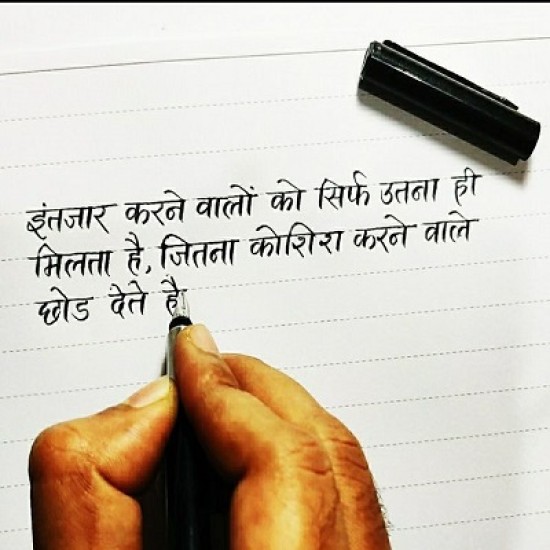 इंतजार करने वालों को सिर्फ उतना ही
मिलता है, जितना कोशिश करने वाले
छोड देते है